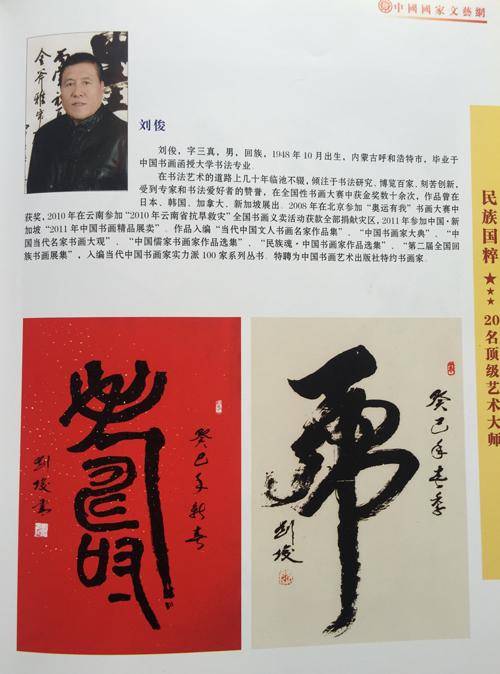 中國國家文藝網
刘俊
刘俊，字三真，男，回族，1948年10月出生，内蒙古呼和浩特市，毕业于
中国书画函授大学书法专业。
在书法艺术的道路上几十年临池不辍，倾注于书法研究、博览百家、刻苦创新，
受到专家和书法爱好者的赞誉，在全国性书画大赛中获金奖数十余次，作品曾在
日本、韩国、加拿大、新加坡展出。2008年在北京参加“奥运有我”书画大赛中
获奖，2010年在云南参加“2010年云南省抗旱救灾”全国书画义卖活动获款全部捐献灾区，2011年参加中国·新
加坡“2011年中国书画精品展卖”。作品入编“当代中国文人书画名家作品集”、“中国书画家大典”、“中
国当代名家书画大观”、“中国儒家书画家作品选集”、“民族魂·中国书画家作品选”、“第二届全国回
族书画展集”，入编当代中国书画家实力派100家系列丛书。特聘为中国书画艺术出版社特约书画家。
民族国粹★★★20名顶级艺术大师
癸巳年新春
刘俊书
虎
癸巳年春季
刘俊